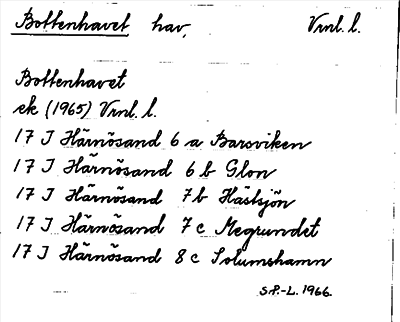 Bottenhavet hav, Vrnl. l.
Bottenhavet
ek (1965) Vrnl. l.
17 J Härnösand 6 a Barsviken
17 J Härnösand 6 b Glon
17 J Härnösand 7 b Hästsjön
17 J Härnösand 7 c Megrundet
17 J Härnösand 8 c Solumshamn
S.P.-L. 1966.